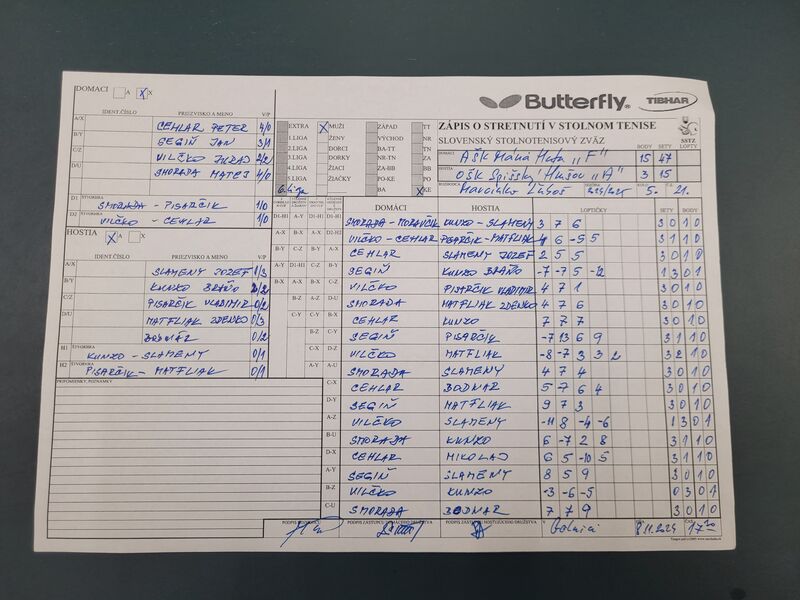 DOMACÍ A X X
IDENT.ČÍSLO PRIEZVISKO A MENO V/P
A/X CEHLAR PETER 4/0
B/Y SEGIŇ JAN 3/1
C/Z VILČKO JURAJ 2/2
D/U SMORADA MATEJ 4/0
D1 ŠTVORHRA
SMORADA - PISARČIK 1/0
D2 ŠTVORHRA
VILČKO - CEHLAR 1/0
HOSTIA X A X
IDENT ČÍSLO PRIEZVISKO A MENO V/P
A/X SLAMENY JOZEF 1/3
B/Y KUNZO BRAŇO 2/2
C/Z PISARČIK VLADIMIR 0/2
D/U MATFLIAK ZDENKO 0/3
BODNÁR 0/2
H1 ŠTVORHRA
KUNZO - SLAMENY 0/1
H2 ŠTVORHRA
PISARČIK - MATFLIAK 0/1
PRIPOMIENKY, POZNÁMKY
Butterfly TIBHAR
EXTRA X MUŽI ZÁPAD TT
1.LIGA ŽENY VÝCHOD NR
2.LIGA DORCI BA-TT TN
3.LIGA DORKY NR-TN ZA
4.LIGA ŽIACI ZA-BB BB
5.LIGA ŽIAČKY PO-KE PO
6.liga BA X KE
ZÁPIS O STRETNUTÍ V STOLNOM TENISE
SLOVENSKÝ STOLNOTENISOVÝ ZVÄZ
SSTZ
BODY SETY LOPTY
DOMÁCI AŠK Malá Huta „F" 15 47
HOSTIA OŠK Spišský Hrušov „A" 3 15
ROZHODCA 2024/2025 5. 21.
DOMÁCI HOSTIA LOPTIČKY SETY BODY
SMORADA - MORAVČIK KUNZO - SLAMENY 3 7 6 3 0 1 0
VILČKO - CEHLAR PISARČIK - MATFLIAK 4 6 -5 5 3 1 1 0
CEHLAR SLAMENY JOZEF 2 5 5 3 0 1 0
SEGIŇ KUNZO BRAŇO -7 -7 5 -12 1 3 0 1
VILČKO PISTRČIK VLADIMIR 4 7 1 3 0 1 0
SMORADA MATFLIAK ZDENKO 4 7 6 3 0 1 0
CEHLAR KUNZO 7 7 7 3 0 1 0
SEGIŇ PISARČIK -7 13 6 9 3 1 1 0
VILČKO MATFLIAK -8 -7 3 3 2 3 2 1 0
SMORADA SLAMENY 4 7 4 3 0 1 0
CEHLAR BODNAR 5 -7 6 4 3 1 1 0
SEGIŇ MATFLIAK 9 7 3 3 0 1 0
VILČKO SLAMENY -11 8 -4 -6 1 3 0 1
SMORADA KUNZO 6 -7 2 8 3 1 1 0
CEHLAR MIKOLAJ 6 5 -10 5 3 1 1 0
SEGIŇ SLAMENY 8 5 9 3 0 1 0
VILČKO KUNZO -3 -6 -5 0 3 0 1
SMORADA BODNAR 7 7 9 3 0 1 0
PODPIS ROZHODCU PODPIS ZÁSTUPCU DOMÁCEHO DRUŽSTVA PODPIS ZÁSTUPCU HOSŤUJÚCEHO DRUŽSTVA V 8.11.2024 ČAS 17 20